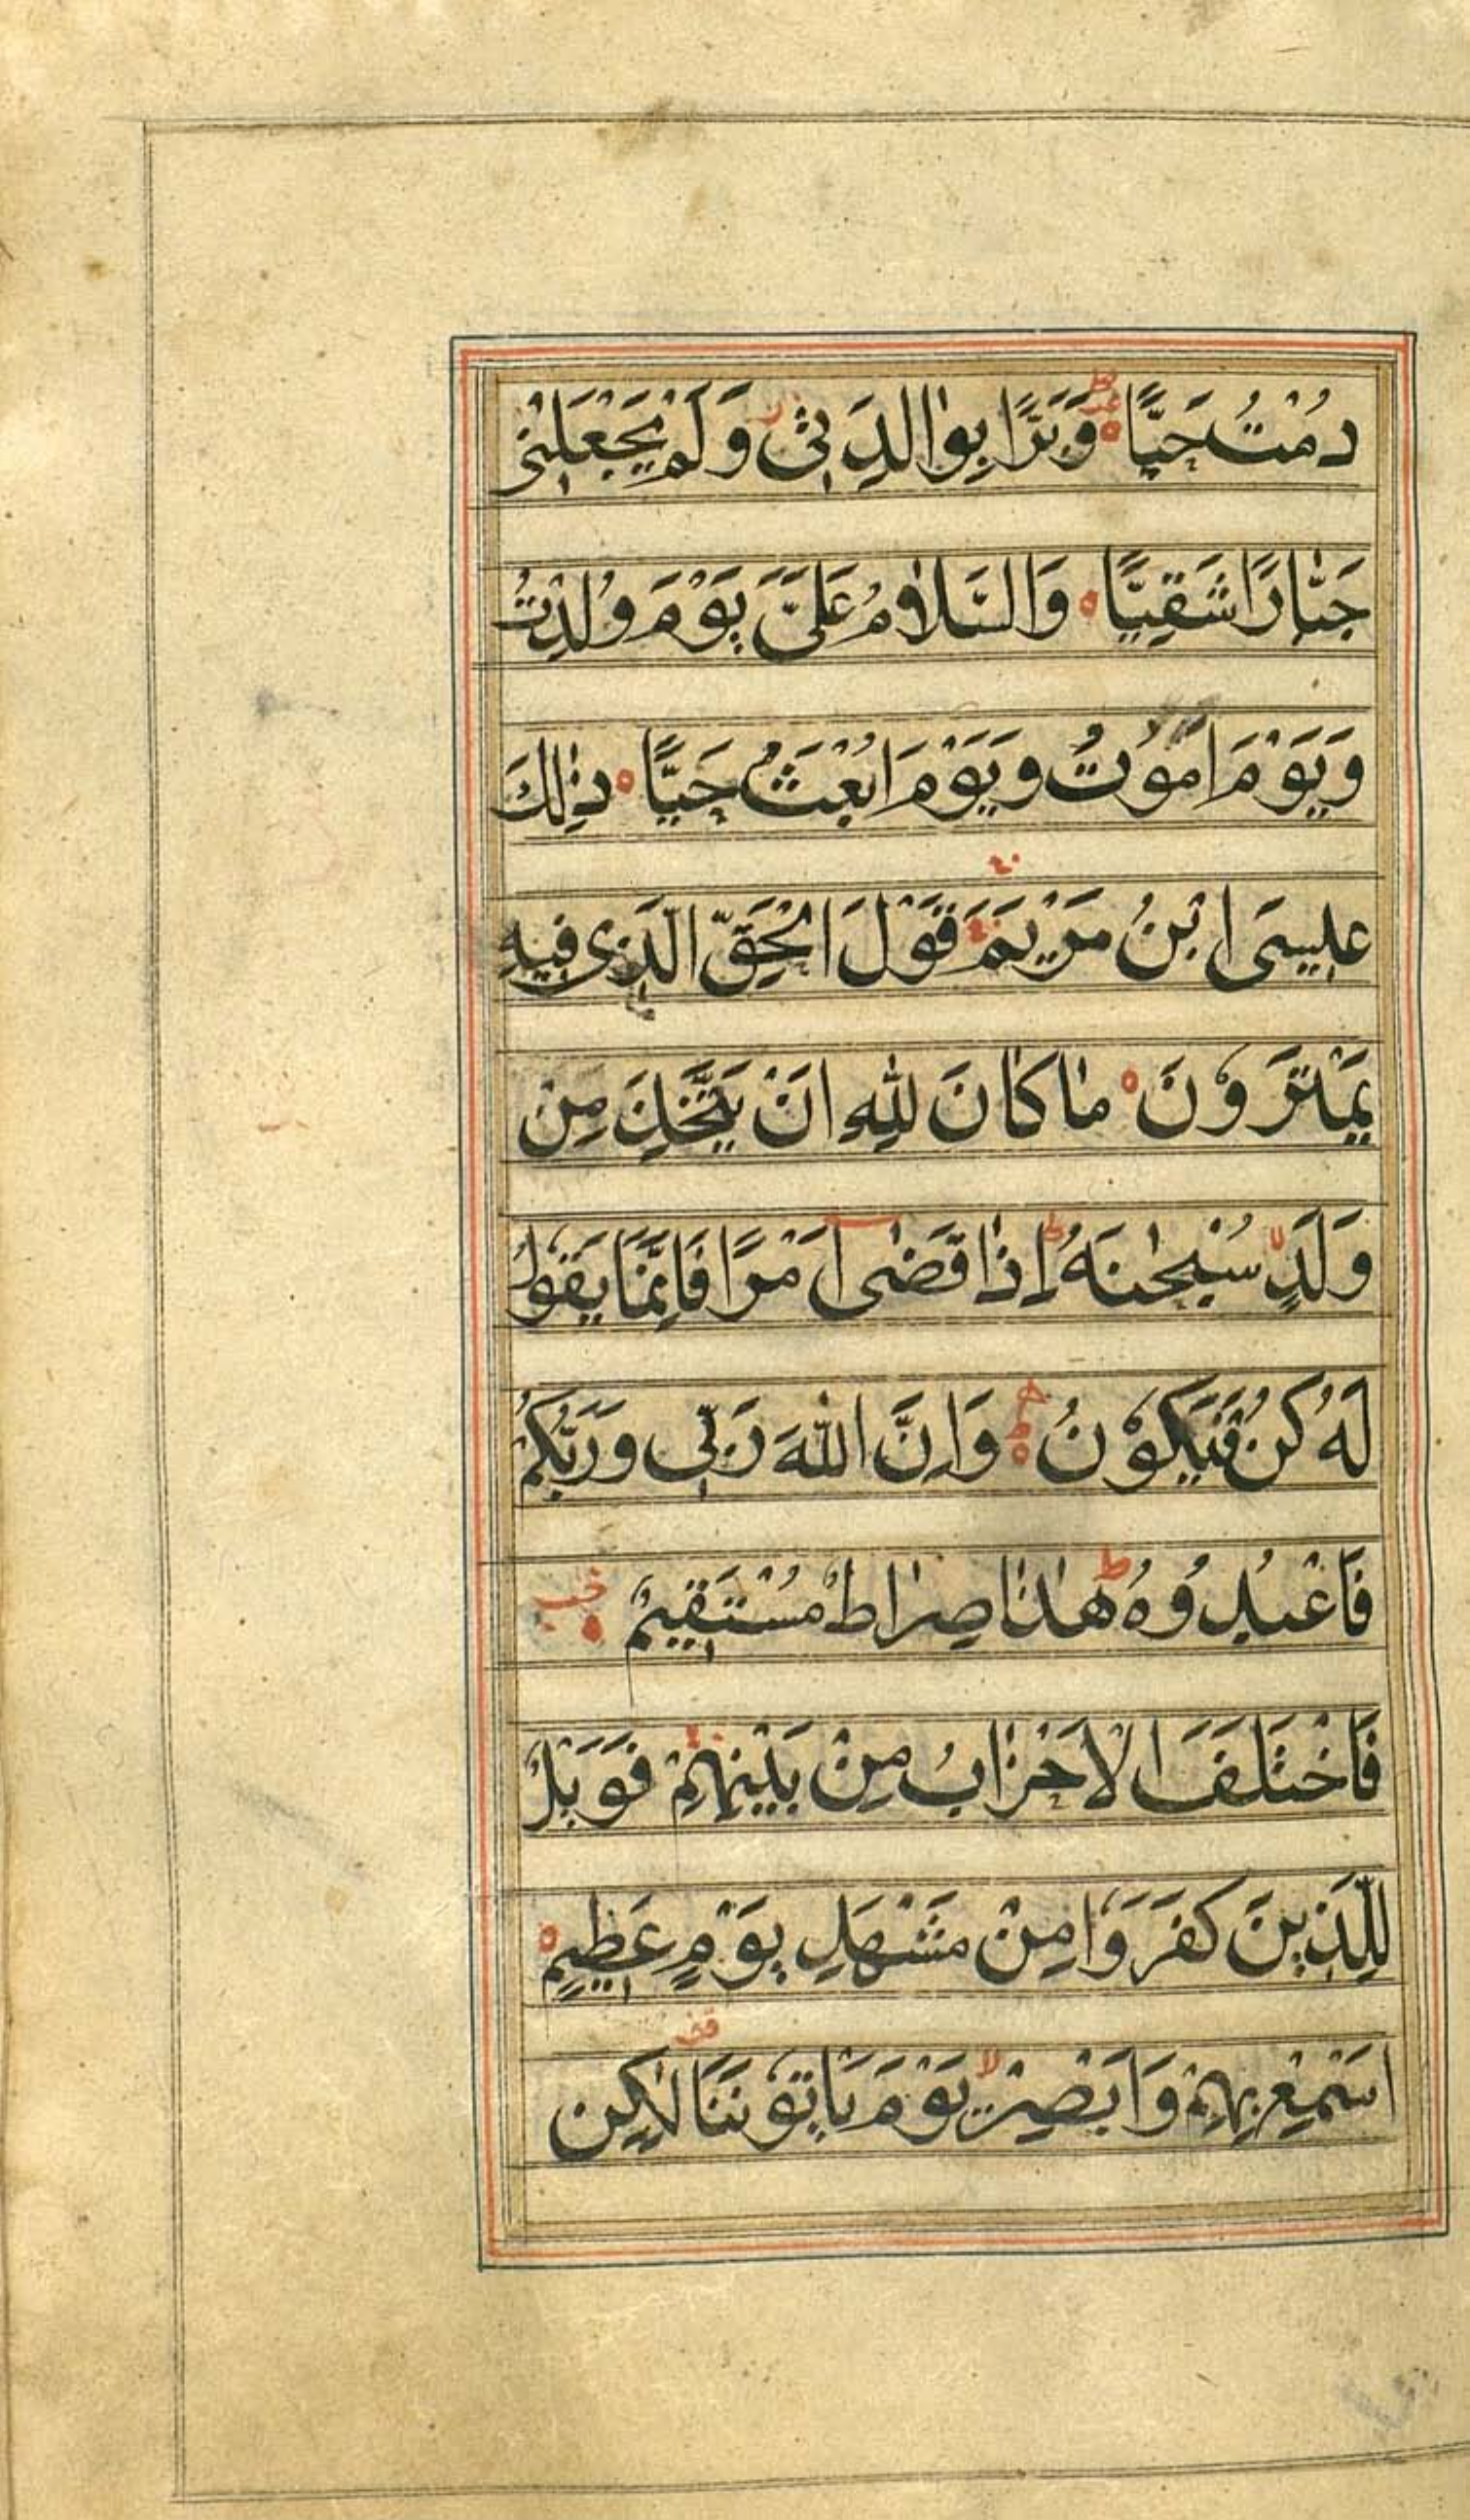 دُمْتُ حَيًّا وَبَرًّا بِوٰالِدَتِىْ وَلَمْ يَجْعَلْنِىْ
جَبّٰارًا شَقِيًّا وَالسَّلٰامُ عَلَىَّ يَوْمَ وُلِدْتُ
وَيَوْمَ اَمُوْتُ وَيَوْمَ اُبْعَثُ حَيًّا ذٰلِكَ
عِيسَى ابْنُ مَرْيَمَ قَوْلَ الْحَقِّ الَّذِى فِيهِ
يَمْتَرُوْنَ مٰا كٰانَ لِلّٰهِ اَنْ يَتَّخِذَ مِنْ
وَلَدٍ سُبْحٰنَهُ اِذٰا قَضٰى اَمْرًا فَاِنَّمَا يَقُوْلُ
لَهُ كُنْ فَيَكُوْنُ وَاِنَّ اللّٰهَ رَبِّى وَرَبُّكُمْ
فَاعْبُدُوُهُ هٰذٰا صِرٰاطٌ مُسْتَقِيمٌ
فَاخْتَلَفَ الْاَحْزٰابُ مِنْ بَيْنِهِمْ فَوَيْلٌ
لِلَّذِينَ كَفَرُوْا مِنْ مَشْهَدِ يَوْمٍ عَظِيمٍ
اَسْمِعْ بِهِمْ وَاَبْصِرْ يَوْمَ يَاْتُوْنَنَا لٰكِنِ